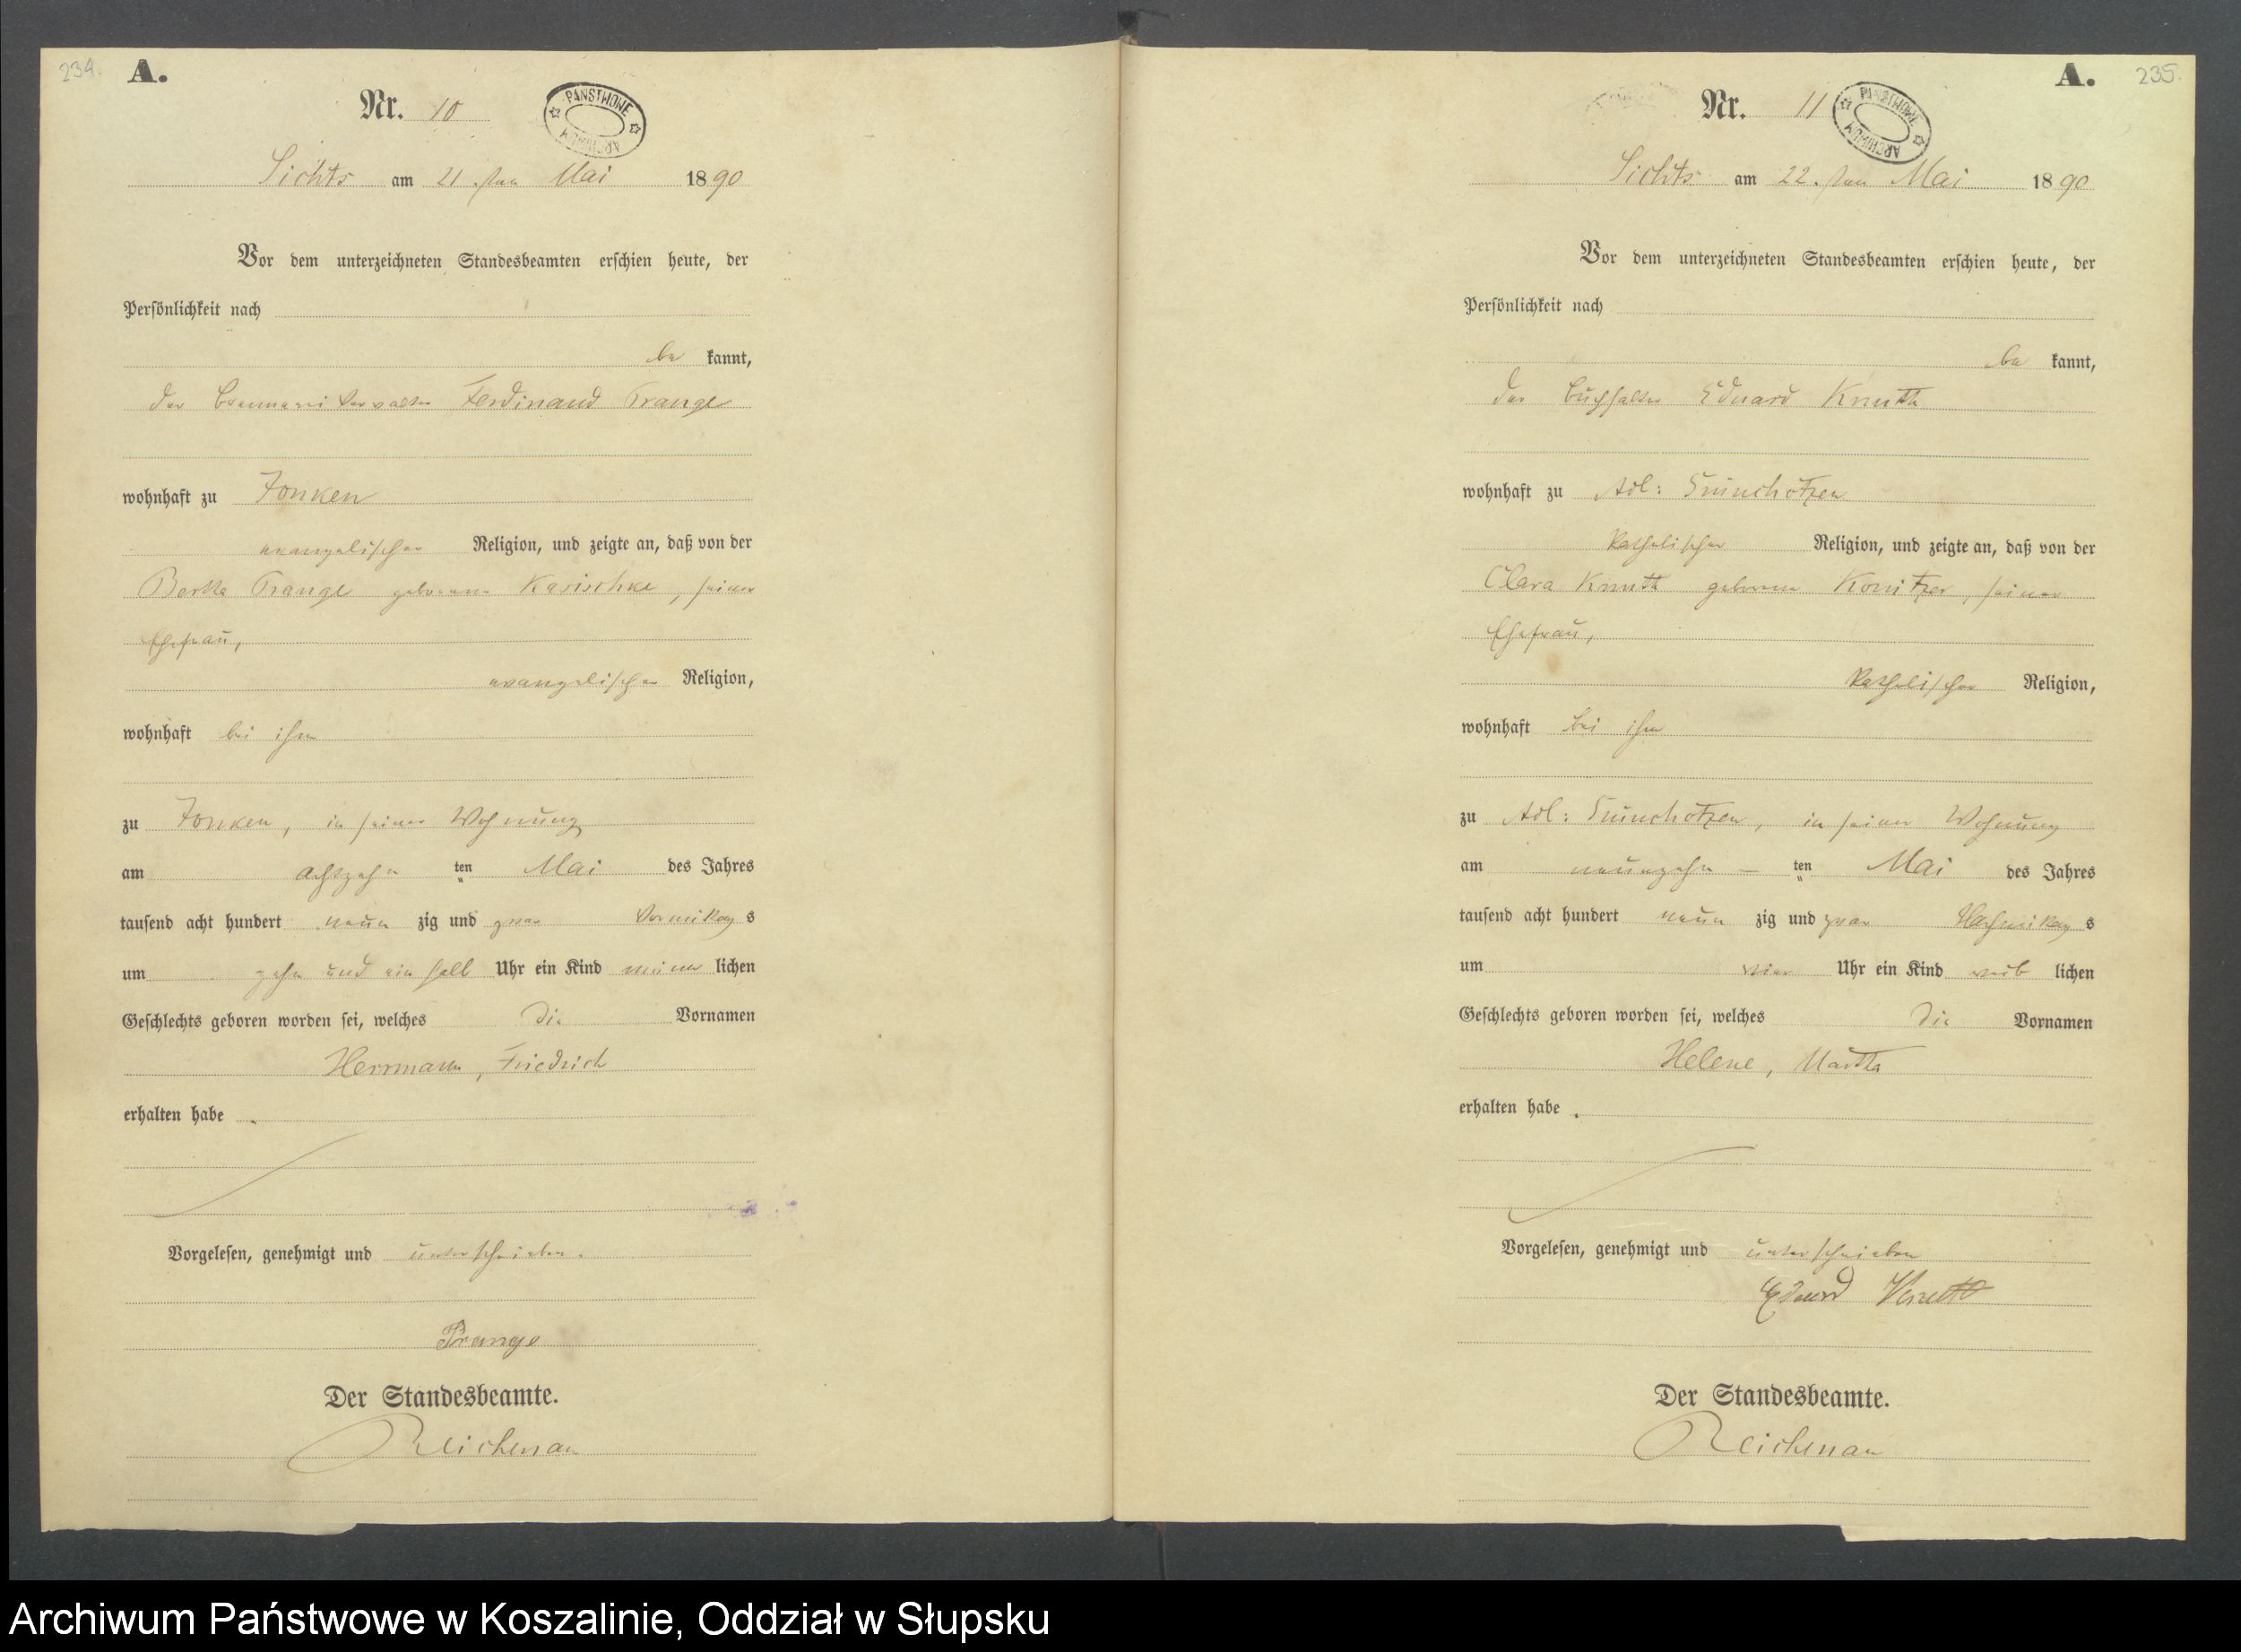 234.
A.
Nr. 10
PAŃSTWOWE ARCHIWUM
Sichts am 21. ten Mai 1890
Vor dem unterzeichneten Standesbeamten erschien heute, der
Persönlichkeit nach
be kannt,
der Brennerei Verwalter Ferdinand Prange
wohnhaft zu Fonken
evangelischer Religion, und zeigte an, daß von der
Bertha Prange geborene Karischke, seiner
Ehefrau,
evangelischer Religion,
wohnhaft bei ihm
zu Fonken, in seiner Wohnung
am achtzehn ten Mai des Jahres
tausend acht hundert neun zig und zwar Vormittag s
um zehn und ein halb Uhr ein Kind männ lichen
Geschlechts geboren worden sei, welches die Vornamen
Herrmann, Friedrich
erhalten habe.
Vorgelesen, genehmigt und unterschrieben.
Prange
Der Standesbeamte.
Reichenau
235.
A.
Nr. 11
PAŃSTWOWE ARCHIWUM
Sichts am 22. ten Mai 1890
Vor dem unterzeichneten Standesbeamten erschien heute, der
Persönlichkeit nach
be kannt,
der Buchhalter Eduard Knuth
wohnhaft zu Adl: Gründchotzen
katholischer Religion, und zeigte an, daß von der
Clara Knuth geborene Konitzer, seiner
Ehefrau,
katholischer Religion,
wohnhaft bei ihm
zu Adl: in seiner Wohnung
am neunzehn — ten Mai des Jahres
tausend acht hundert neun zig und zwar Nachmittag s
um vier Uhr ein Kind weib lichen
Geschlechts geboren worden sei, welches die Vornamen
Helene, Martha
erhalten habe.
Vorgelesen, genehmigt und unterschrieben
Eduard Knuth
Der Standesbeamte.
Reichenau
Archiwum Państwowe w Koszalinie, Oddział w Słupsku